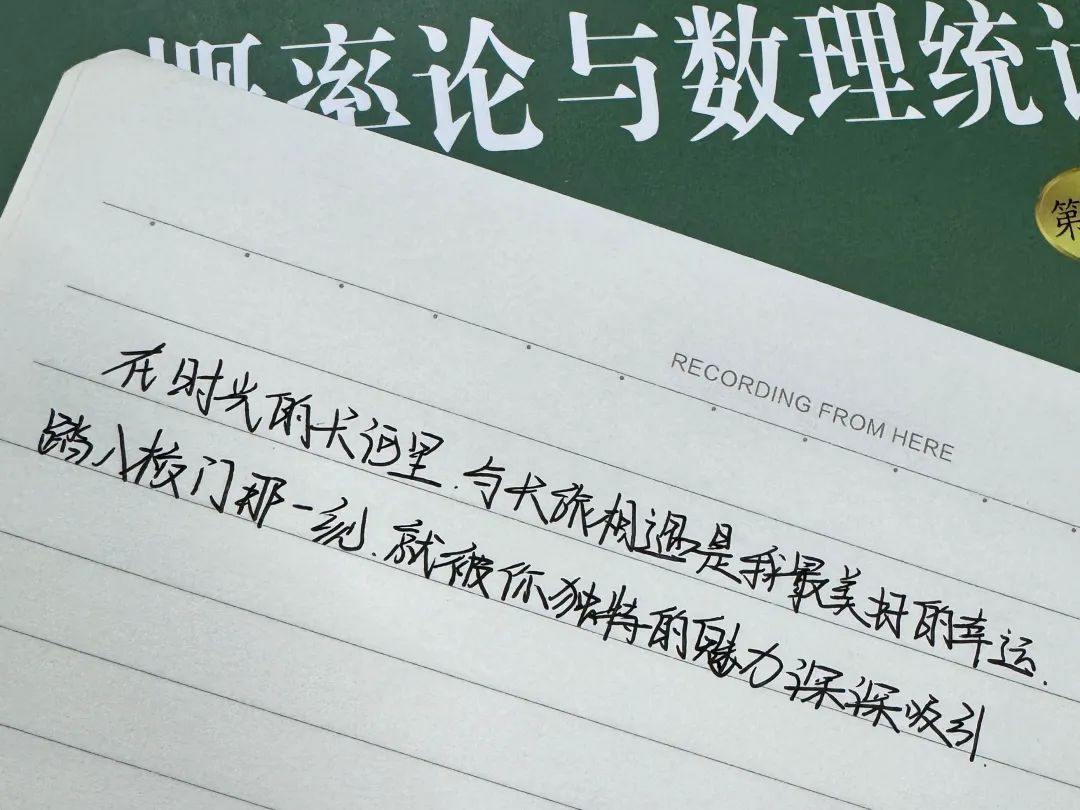 概率论与数理统计
第
RECORDING FROM HERE
在时光的长河里,与长旅相遇是我最美好的幸运.
踏入校门那一刻,就被你独特的魅力深深吸引.